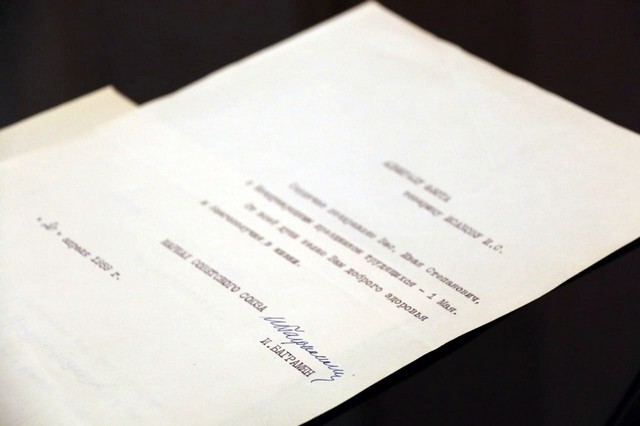 АДМИРАЛУ ФЛОТА
товарищу ИСАКОВУ И.С.
Сердечно поздравляю Вас, Иван Степанович,
с Международным праздником трудящихся – 1 Мая.
От всей души желаю Вам доброго здоровья
и в жизни.
МАРШАЛ СОВЕТСКОГО СОЮЗА
И.БАГРАМЯН
апреля 1959 г.